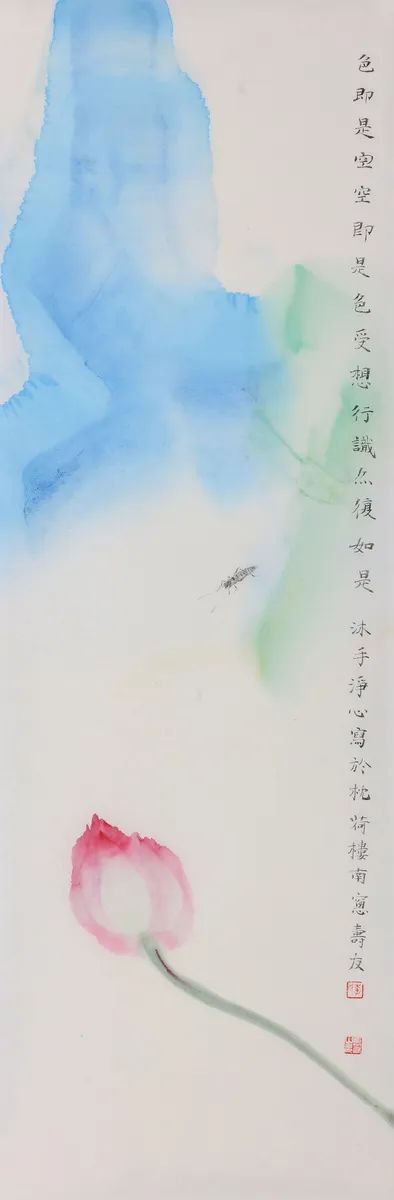 色即是空空即是色受想行識亦復如是 沐手淨心寫於枕荷樓南窗壽友